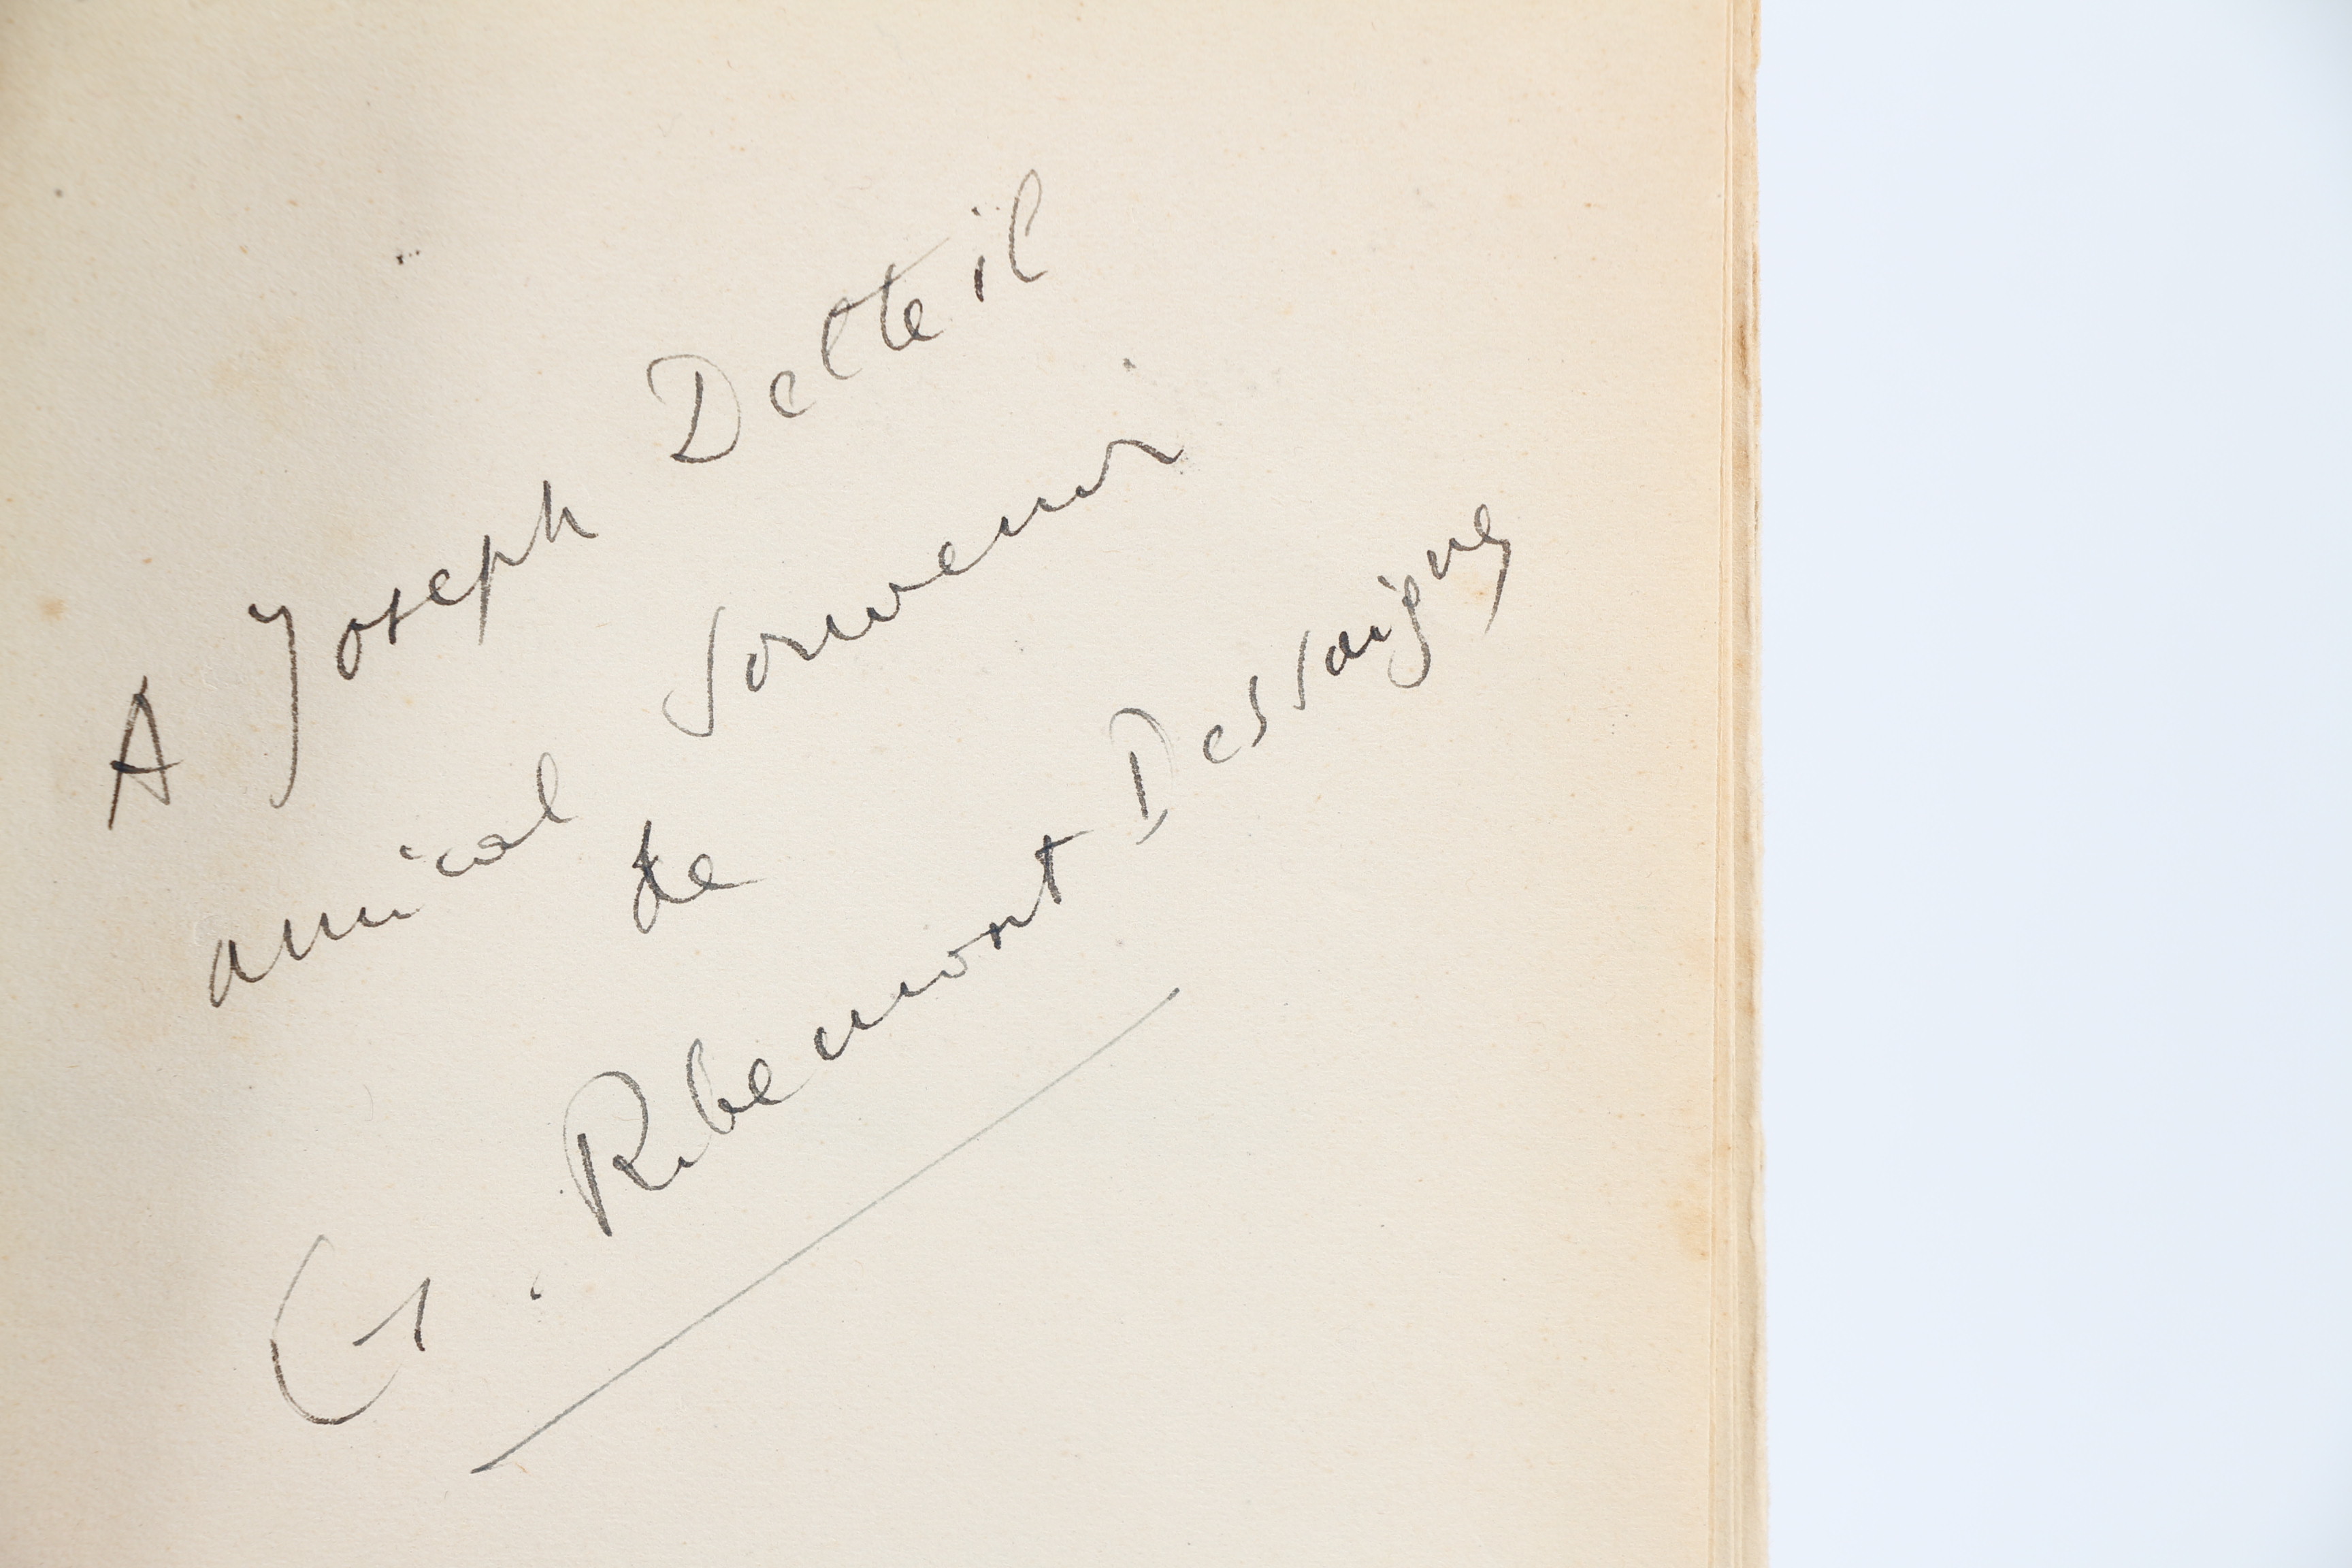 A Joseph Delteil
amical souvenir
de
G. Ribemont Dessaignes